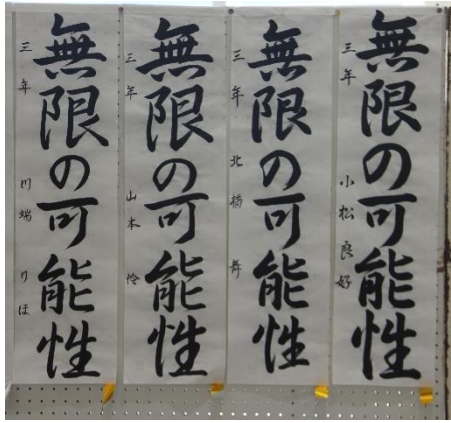 無限の可能性
三年 小松良好
無限の可能性
三年 北橋舞
無限の可能性
三年 山本怜
無限の可能性
三年 川端りほ